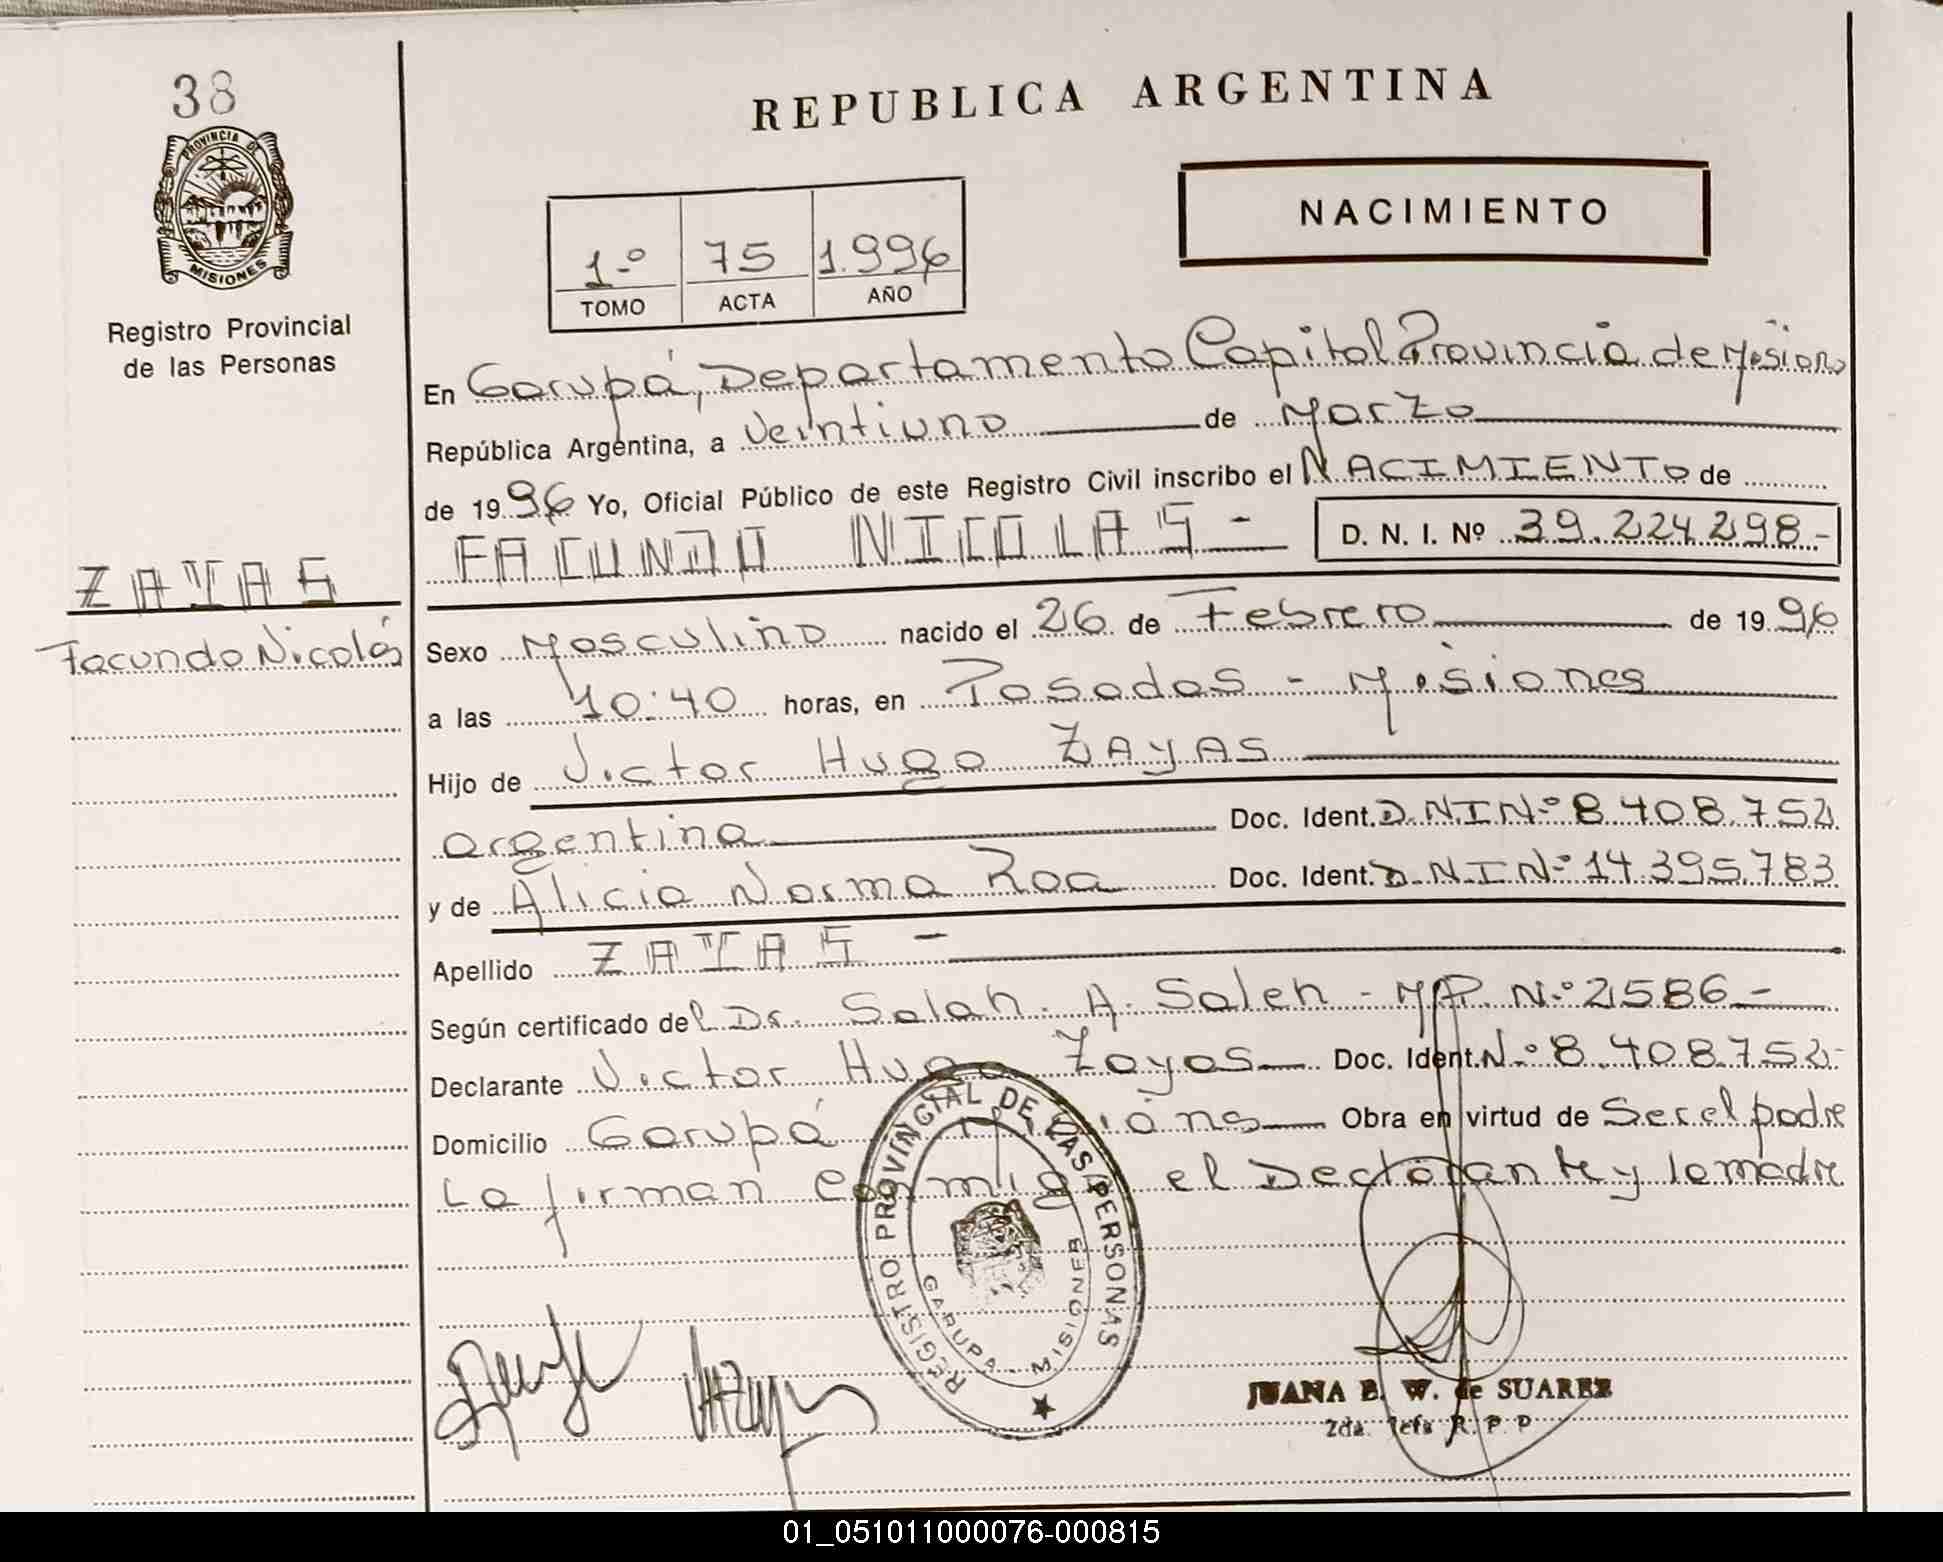 38
PROVINCIA DE
MISIONES
Registro Provincial
de las Personas
ZAYAS
Facundo Nicolás
REPUBLICA ARGENTINA
NACIMIENTO
1º 75 1.996
TOMO ACTA AÑO
En Garupá, Departamento Capital Provincia de Misiones
República Argentina, a veintiuno de Marzo
de 1996 Yo, Oficial Público de este Registro Civil inscribo el NACIMIENTO de
FACUNDO NICOLAS - D. N. I. Nº 39.224.298-
Sexo Masculino nacido el 26 de Febrero de 1996
a las 10:40 horas, en Posadas - Misiones
Hijo de Victor Hugo ZAYAS
argentina Doc. Ident. D.N.I Nº 8.408.752
y de Alicia Norma Roa Doc. Ident. D.N.I Nº 14.395.783
Apellido ZAYAS -
Según certificado del Dr. Salah. A. Saleh - M.P. Nº 2586 -
Declarante Victor Hugo Zayas Doc. Ident. Nº 8.408.752-
Domicilio Garupá Obra en virtud de Ser el padre
La firman conmigo el Declarante y la madre
REGISTRO PROVINCIAL DE LAS PERSONAS
GARUPA - MISIONES
JUANA E. W. de SUAREZ
2da. Jefa R. P. P
01_051011000076-000815